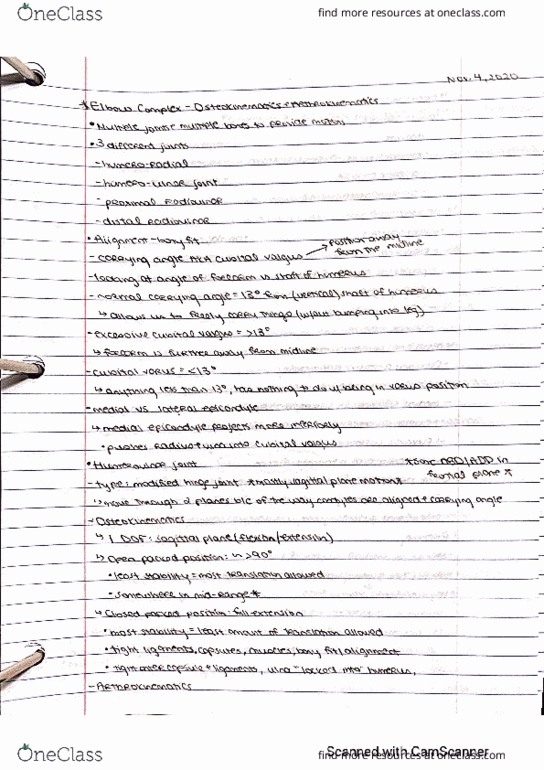 OneClass
find more resources at oneclass.com
Nov. 4, 2020
* Elbow Complex - Osteokinematics + Arthrokinematics
• Multiple joints + multiple bones to provide motions
• 3 different joints
- humero-radial
- humero-ulnar joint
- proximal radioulnar
- distal radioulnar
• Alignment - bony fit
position away
from the midline
- carrying angle AKA cubital valgus →
- looking at angle of forearm vs shaft of humerus
- normal carrying angle = 13° from (vertical) shaft of humerus
↳ allows us to freely carry things (w/out bumping into leg)
- excessive cubital valgus = >13°
↳ forearm is further away from midline
- cubital varus = <13°
↳ anything less than 13°, has nothing to do w/ being in varus position
- medial vs lateral epicondyle
↳ medial epicondyle projects more inferiorly
• pushes radius + ulna into cubital valgus
• Humeroulnar joint
*some ABD/ADD in
frontal plane *
- type: modified hinge joint *mostly sagittal plane motions
↳ move through 2 planes b/c of the way condyles are aligned + carrying angle
- Osteokinematics
↳ 1 DOF: sagittal plane (flexion/extension)
↳ Open packed position: in >90°
• least stability = most translation allowed
• somewhere in mid-range *
↳ Closed packed position: full extension
• most stability = least amount of translation allowed
• tight ligaments, capsules, muscles, bony fit/alignment
• tight capsule + ligaments, ulna "locked into" humerus,
- Arthrokinematics
Scanned with CamScanner
OneClass
find more resources at oneclass.com